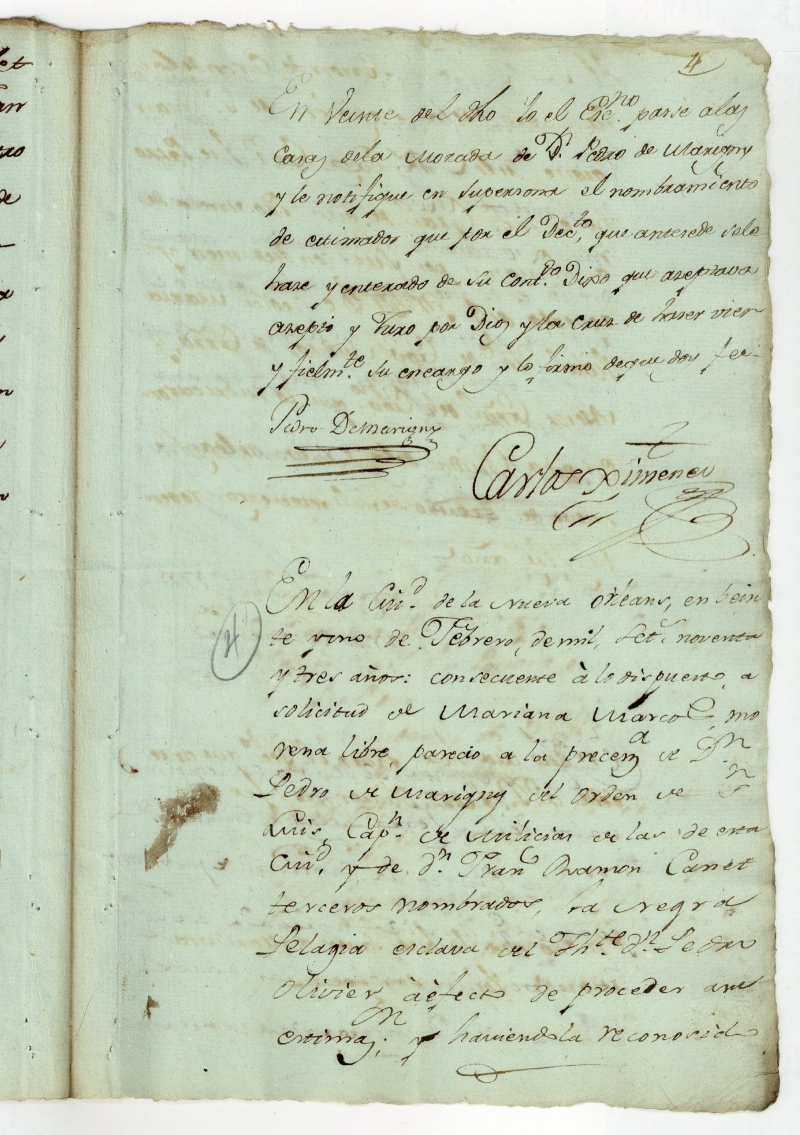 4
En Veinte del dho Yo el Esc.no passe a las
Casas dela Morada de Dn. Pedro de Marigny
y le notifique en su persona el nombramiento
de estimador que por el Dec.to, que antesede sele
haze y enterado de su cont.do Dixo que aseptava
asepto y Juro por Dios y la Cruz de haser vien
y fielm.te su encargo y lo firmo deque doy fee
Pedro DeMarigny
Carlos Ximenes
4
En la Ciu.d de la Nueva Orleans, en bein
te y uno de Febrero, de mil, Set.s noventa
y tres años: consecuente à lo dispuesto, a
solicitud de Mariana Marcos, mo
rena libre, parecio a la precens.a de Dn.
Pedro de Marigny del orden de Sn
Luis, Cap.n de Milicias de las de esta
Ciu.d y de d.n Fran.co Ramon Canet
terceros nombrados, la Negra
Pelagia esclava del Th.te d.n Pedro
Olivier à efecto de proceder a su
estimas.n y haviendola reconosid